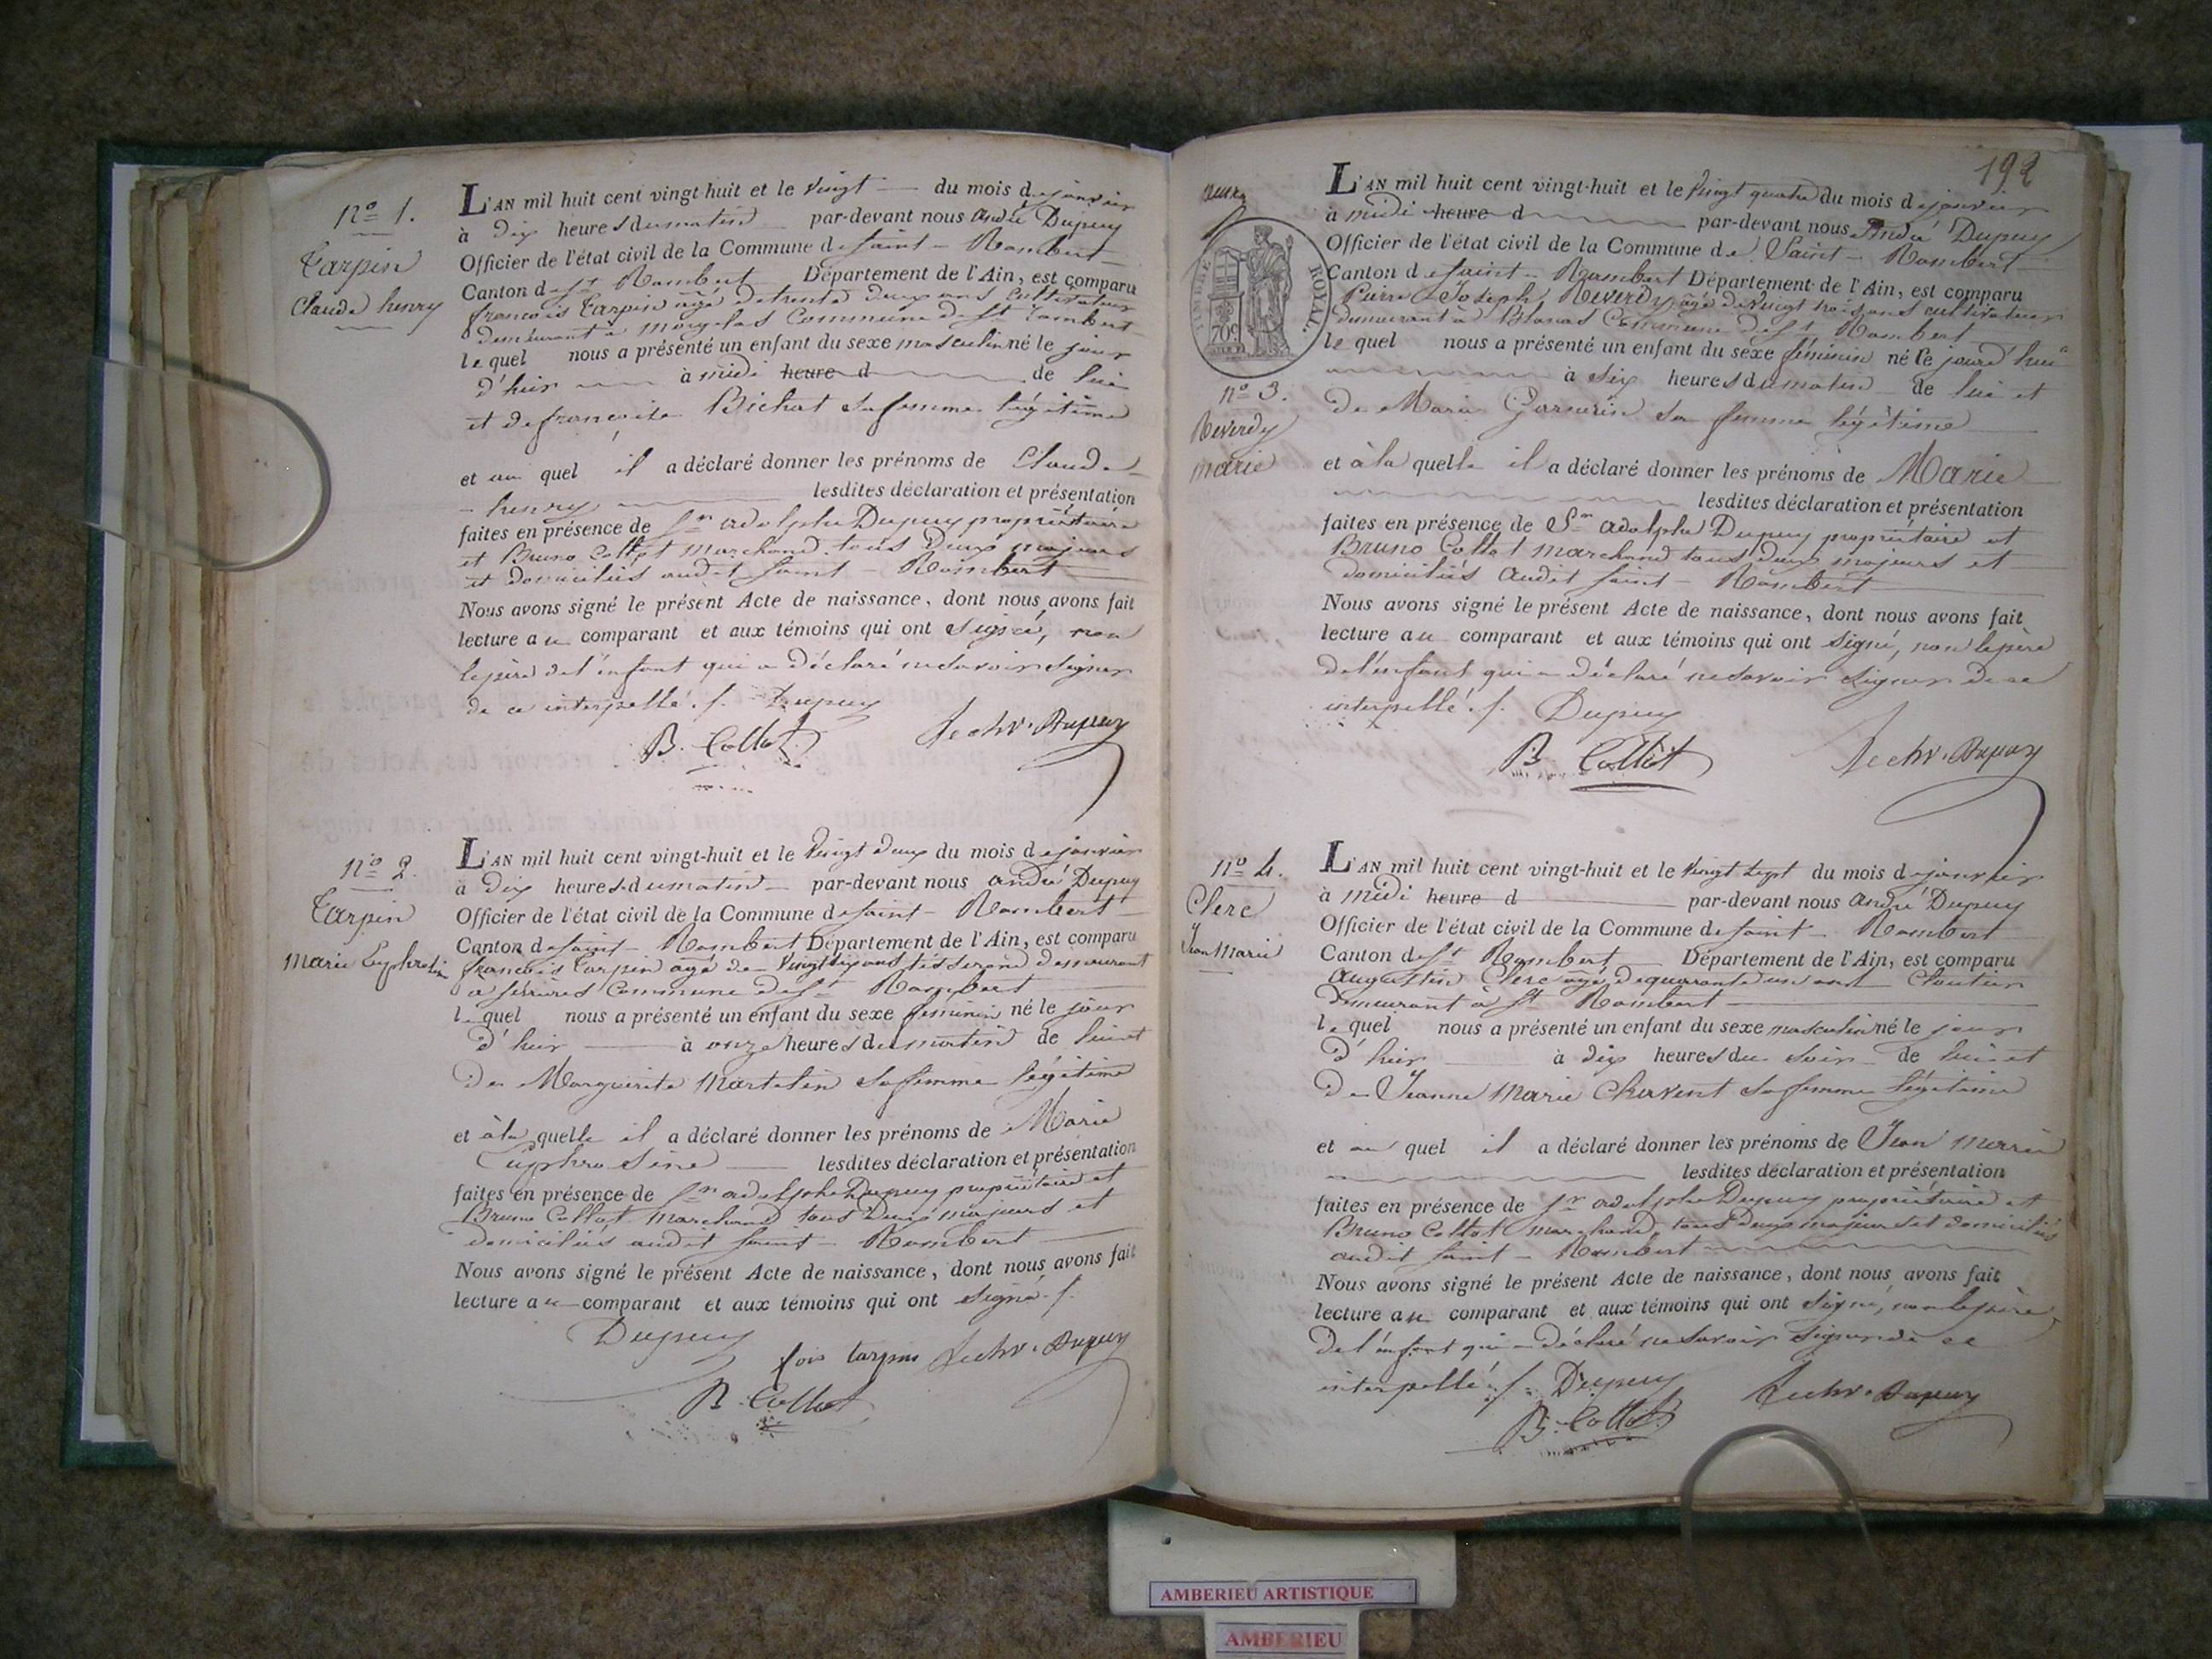 nº 1.
Tarpin
Claude henry
L'AN mil huit cent vingt-huit et le vingt du mois de janvier
à dix heures du matin par-devant nous andré Dupuy
Officier de l'état civil de la Commune de saint-Rambert
Canton de st Rambert Département de l'Ain, est comparu
francois Tarpin agé de trente deux ans cultivateur
demeurant a Commune de st Rambert
le quel nous a présenté un enfant du sexe masculin né le jour
d'hier à midi heure d de lui
et de francoise Bichat sa femme légitime
et au quel il a déclaré donner les prénoms de Claude
henry lesdites déclaration et présentation
faites en présence de Sr adolphe Dupuy propriétaire
et Bruno Collot marchand tous deux majeurs
et domiciliés audit saint-Rambert
Nous avons signé le présent Acte de naissance, dont nous avons fait
lecture au comparant et aux témoins qui ont signé, non
le père de l'enfant qui a déclaré ne savoir signer
de ce interpellé. Dupuy
B. Collot Dupuy
nº 2.
Tarpin
Marie
L'AN mil huit cent vingt-huit et le vingt deux du mois de janvier
à dix heures du matin par-devant nous andré Dupuy
Officier de l'état civil de la Commune de saint-Rambert
Canton de saint-Rambert Département de l'Ain, est comparu
francois Tarpin agé de vingt six ans tisserand demeurant
a serrières Commune de st Rambert
le quel nous a présenté un enfant du sexe feminin né le jour
d'hier à onze heures du matin de lui et
de Marguerite Martelin sa femme légitime
et à la quelle il a déclaré donner les prénoms de Marie
Euphrosine lesdites déclaration et présentation
faites en présence de Sr adolphe Dupuy propriétaire et
Bruno Collot marchand tous deux majeurs et
domiciliés audit saint-Rambert
Nous avons signé le présent Acte de naissance, dont nous avons fait
lecture au comparant et aux témoins qui ont signé.
Dupuy
fois tarpin Dupuy
B. Collot
192
ROYAL.
70c
nº 3.
Reverdy
marie
L'AN mil huit cent vingt-huit et le vingt quatre du mois de janvier
à midi heure d par-devant nous André Dupuy
Officier de l'état civil de la Commune de Saint-Rambert
Canton de saint-Rambert Département de l'Ain, est comparu
Pierre Joseph Reverdy agé de vingt trois ans cultivateur
demeurant à Blanas Commune de st Rambert
le quel nous a présenté un enfant du sexe féminin né le jourd'hui
à six heures du matin de lui et
de Marie sa femme légitime
et à la quelle il a déclaré donner les prénoms de Marie
lesdites déclaration et présentation
faites en présence de Sr adolphe Dupuy propriétaire et
Bruno Collot marchand tous deux majeurs et
domiciliés audit saint-Rambert
Nous avons signé le présent Acte de naissance, dont nous avons fait
lecture au comparant et aux témoins qui ont signé, non le père
de l'enfant qui a déclaré ne savoir signer de ce
interpellé. Dupuy
B. Collot Dupuy
nº 4.
Clerc
Jean Marie
L'AN mil huit cent vingt-huit et le vingt sept du mois de janvier
à midi heure d par-devant nous andré Dupuy
Officier de l'état civil de la Commune de saint-Rambert
Canton de st Rambert Département de l'Ain, est comparu
augustin Clerc agé de quarante un ans Cloutier
demeurant à st Rambert
le quel nous a présenté un enfant du sexe masculin né le jour
d'hier à dix heures du soir de lui et
de Jeanne Marie Chavent sa femme légitime
et au quel il a déclaré donner les prénoms de Jean Marie
lesdites déclaration et présentation
faites en présence de Sr adolphe Dupuy propriétaire et
Bruno Collot marchand tous deux majeurs et domiciliés
audit saint-Rambert
Nous avons signé le présent Acte de naissance, dont nous avons fait
lecture au comparant et aux témoins qui ont signé, non le père
de l'enfant qui a déclaré ne savoir signer de ce
interpellé. Dupuy Dupuy
B. Collot
AMBERIEU ARTISTIQUE
AMBERIEU